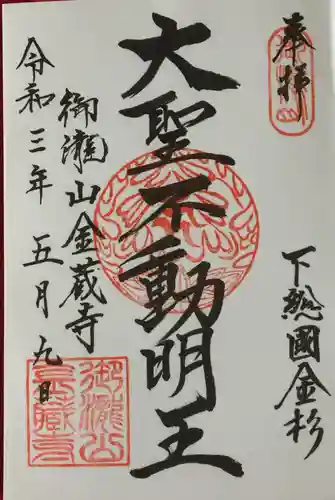 奉拝
下總國金杉
大聖不動明王
御瀧山金蔵寺
令和三年五月九日
御瀧山
金藏寺